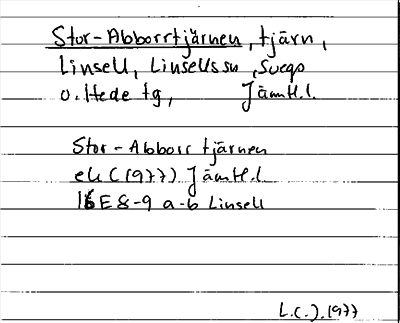 Stor-Abborrtjärnen, tjärn,
Linsell, Linsells sn, Svegs
o. Hede tg, Jämtl.l.
Stor-Abborrtjärnen
ek (1977) Jämtl.l
16E 8-9 a-b Linsell
L.C.J. 1977